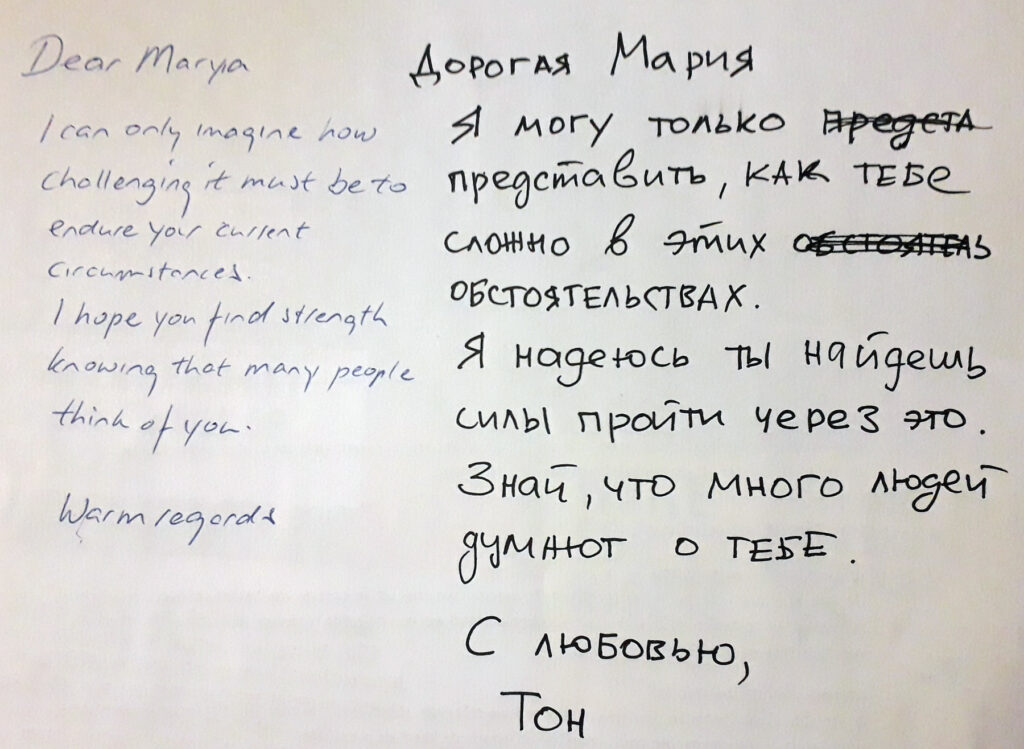 Dear Marya
I can only imagine how
challenging it must be to
endure your current
circumstances.
I hope you find strength
knowing that many people
think of you.
Warm regards
Дорогая Мария
Я могу только предста
представить, как тебе
сложно в этих обстоятель
обстоятельствах.
Я надеюсь ты найдешь
силы пройти через это.
Знай, что много людей
думают о тебе.
С любовью,
Тон